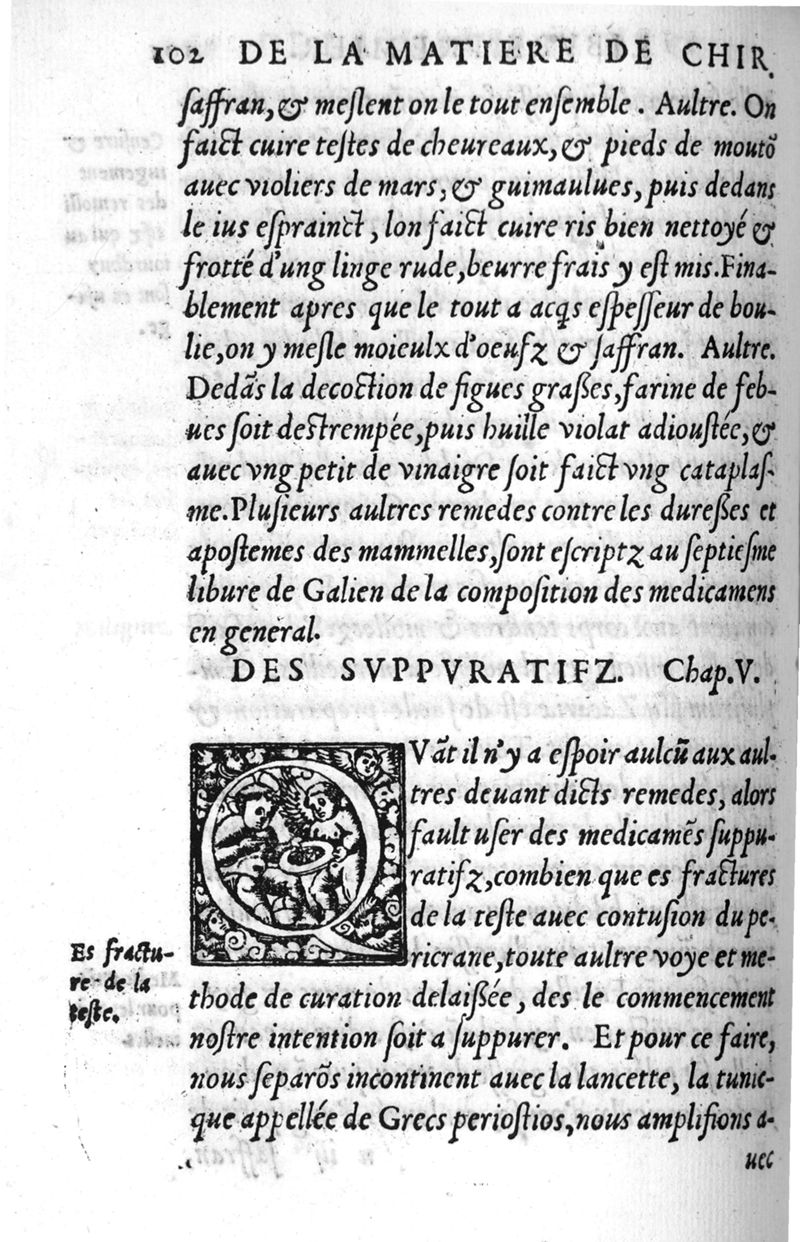 102 DE LA MATIERE DE CHIR.
ſaffran, & meſlent on le tout enſemble. Aultre. On
faict cuire teſtes de cheureaux, & pieds de moutõ
auec violiers de mars, & guimaulues, puis dedans
le ius eſprainct, lon faict cuire ris bien nettoyé &
frotté d'ung linge rude, beurre frais y eſt mis. Fina-
blement apres que le tout a acqs eſpeſſeur de bou-
lie, on y meſle moieulx d'oeufz & ſaffran. Aultre.
Dedãs la decoction de figues graſſes, farine de feb-
ues ſoit deſtrempée, puis huille violat adiouſtée, &
auec vng petit de vinaigre ſoit faict vng cataplaſ-
me. Pluſieurs aultres remedes contre les dureſſes et
apoſtemes des mammelles, ſont eſcriptz au ſeptieſme
libure de Galien de la compoſition des medicamens
en general.
DES SVPPVRATIFZ. Chap. V.
QVãt il n'y a eſpoir aulcũ aux aul-
tres deuant dicts remedes, alors
fault uſer des medicamẽs ſuppu-
ratifz, combien que es fractures
de la teſte auec contuſion du pe-
ricrane, toute aultre voye et me-
Es fractu-
re de la
teſte.
thode de curation delaiſſée, des le commencement
noſtre intention ſoit a ſuppurer. Et pour ce faire,
nous ſeparõs incontinent auec la lancette, la tuni-
que appellée de Grecs perioſtios, nous amplifions a-
uec